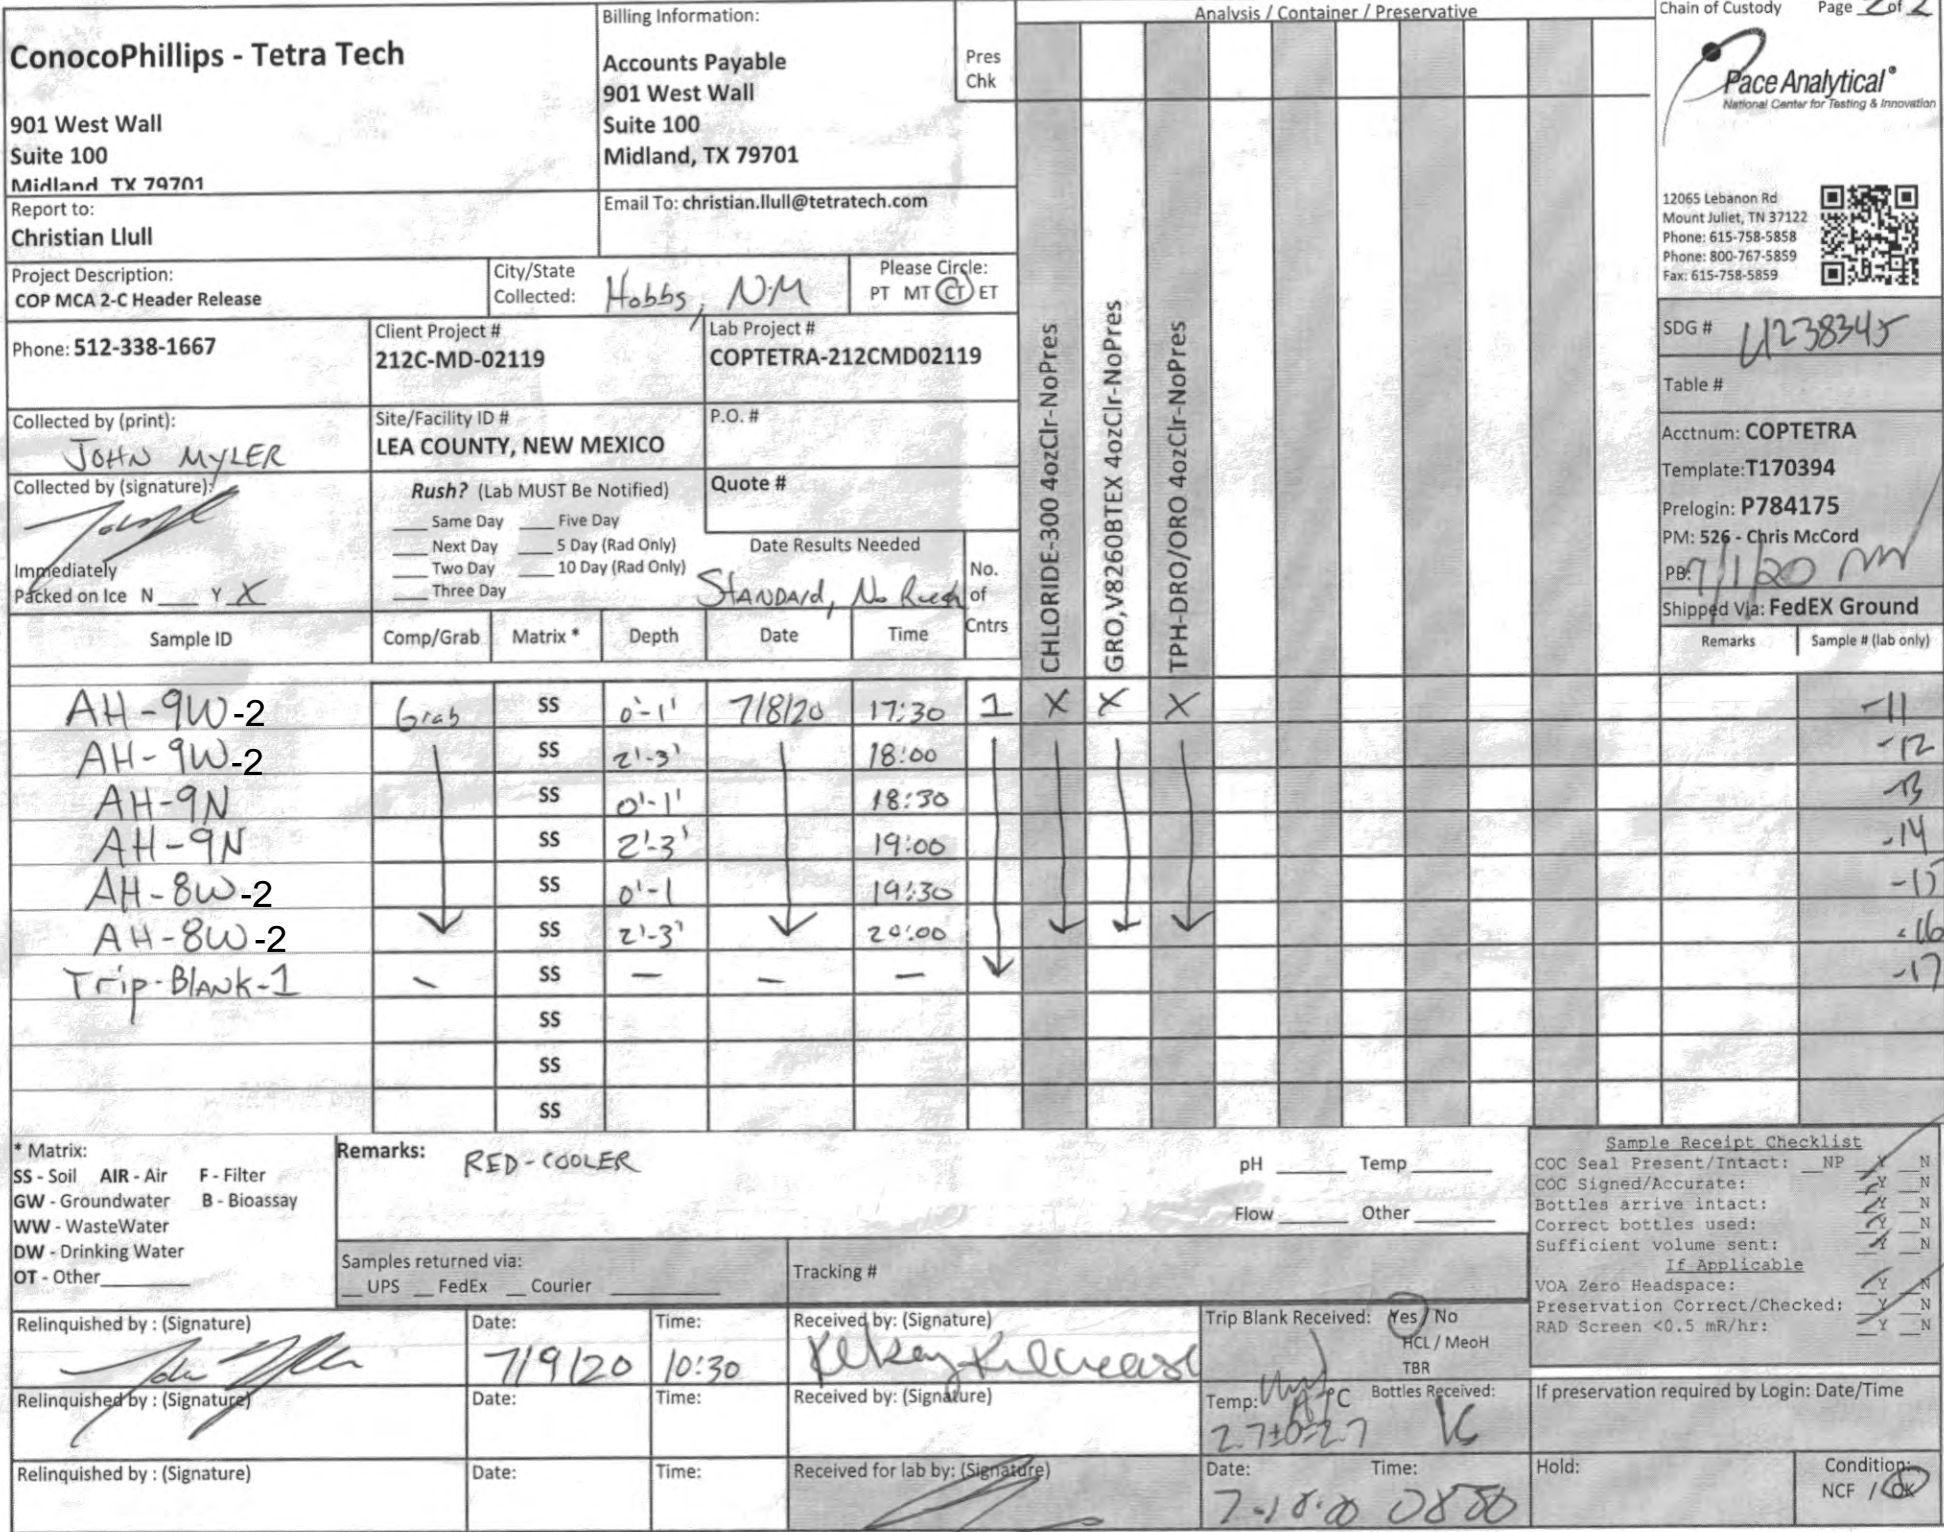 Analysis / Container / Preservative
Chain of Custody Page 2 of 2
ConocoPhillips - Tetra Tech
901 West Wall
Suite 100
Midland, TX 79701
Billing Information:
Accounts Payable
901 West Wall
Suite 100
Midland, TX 79701
Pres
Chk
Pace Analytical®
National Center for Testing & Innovation
12065 Lebanon Rd
Mount Juliet, TN 37122
Phone: 615-758-5858
Phone: 800-767-5859
Fax: 615-758-5859
Report to:
Christian Llull
Email To: christian.llull@tetratech.com
Project Description:
COP MCA 2-C Header Release
City/State
Collected: Hobbs, NM
Please Circle:
PT MT CT ET
Phone: 512-338-1667
Client Project #
212C-MD-02119
Lab Project #
COPTETRA-212CMD02119
Collected by (print):
JOHN MYLER
Site/Facility ID #
LEA COUNTY, NEW MEXICO
P.O. #
Collected by (signature):
Immediately
Packed on Ice N ___ Y X
Rush? (Lab MUST Be Notified)
___ Same Day ___ Five Day
___ Next Day ___ 5 Day (Rad Only)
___ Two Day ___ 10 Day (Rad Only)
___ Three Day
Quote #
Date Results Needed
STANDARD, No Rush
No.
of
Cntrs
CHLORIDE-300 4ozClr-NoPres
GRO,V8260BTEX 4ozClr-NoPres
TPH-DRO/ORO 4ozClr-NoPres
SDG # L1238345
Table #
Acctnum: COPTETRA
Template: T170394
Prelogin: P784175
PM: 526 - Chris McCord
PB: 7/1/20
Shipped Via: FedEX Ground
Remarks Sample # (lab only)
Sample ID Comp/Grab Matrix * Depth Date Time
AH-9W-2 Grab SS 0'-1' 7/8/20 17:30 1 X X X -11
AH-9W-2 SS 2'-3' 18:00 -12
AH-9N SS 0'-1' 18:30 -13
AH-9N SS 2'-3' 19:00 -14
AH-8W-2 SS 0'-1 19:30 -15
AH-8W-2 SS 2'-3' 20:00 -16
Trip-BLANK-1 - SS - - - -17
SS
SS
SS
* Matrix:
SS - Soil AIR - Air F - Filter
GW - Groundwater B - Bioassay
WW - WasteWater
DW - Drinking Water
OT - Other
Remarks: RED-COOLER
pH ___ Temp ___
Flow ___ Other ___
Samples returned via:
__ UPS __ FedEx __ Courier
Tracking #
Sample Receipt Checklist
COC Seal Present/Intact: __NP __Y __N
COC Signed/Accurate: __Y __N
Bottles arrive intact: __Y __N
Correct bottles used: __Y __N
Sufficient volume sent: __Y __N
If Applicable
VOA Zero Headspace: __Y __N
Preservation Correct/Checked: __Y __N
RAD Screen <0.5 mR/hr: __Y __N
Relinquished by : (Signature)
Date: 7/9/20
Time: 10:30
Received by: (Signature)
Trip Blank Received: Yes / No
HCL / MeoH
TBR
Relinquished by : (Signature)
Date:
Time:
Received by: (Signature)
Temp: °C Bottles Received:
2.7±0=2.7
If preservation required by Login: Date/Time
Relinquished by : (Signature)
Date:
Time:
Received for lab by: (Signature)
Date: Time:
Hold:
Condition:
NCF / OK